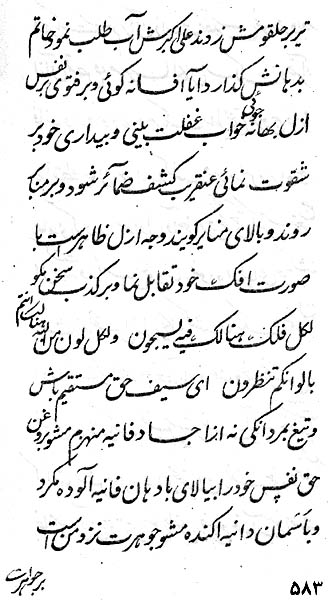 تیر بر حلقومش زدند علی اکبرش آب طلب نمود خاتم
بدهانش گذارد ایا افسانه کوئی و بر فتوی بر نفس
ازل بهانه جوئی خواب غفلت بینی و بیداری خود بر
شقوت نمائی عنقریب کشف ضمآئر شود و بر منابر
روند و بالای منایر کویند وجه ازل ظاهر است با
صورت افک خود تقابل نما و بر کذب سخن مکو
لکل فلک هنالک فیه یسبحون و لکل لون من الله هنالک انتم
بالوانکم تنظرون ای سیف حق مستقیم باش
و تیغ بمردانکی نه از اجساد فانیه منهزم مشو بر وغن
حق نفس خود را بیالای بادهان فانیه آلوده مکرد
و باسمان دانیه اکنده مشو جوهرت نزد من است
بر جواهرات
۵۸۳